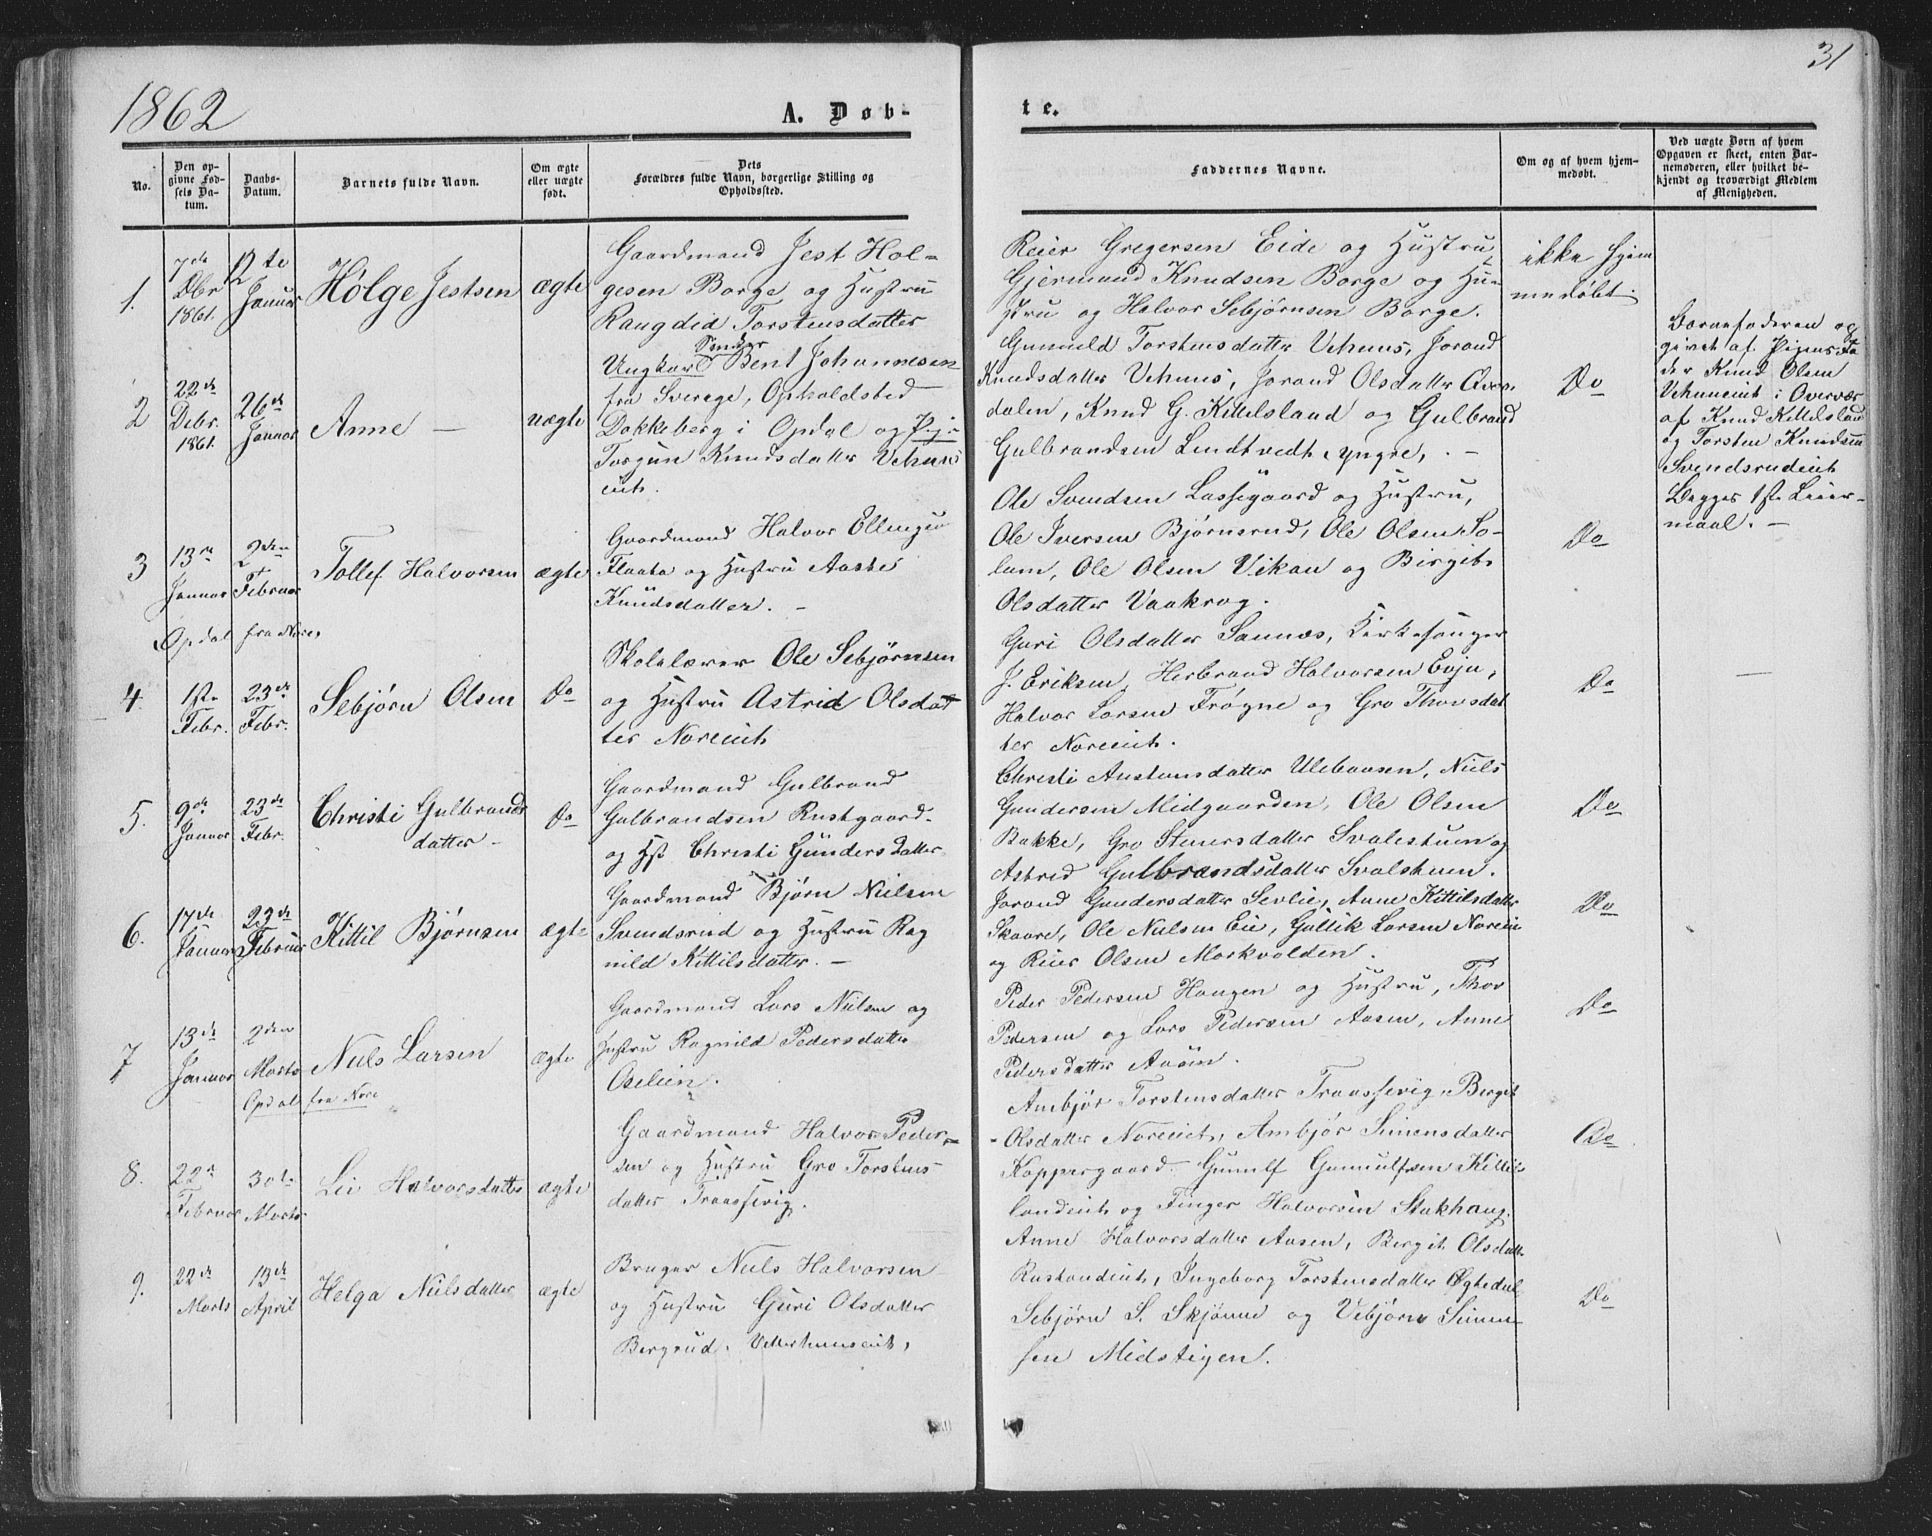 1862
A. Døb-
te.
31
No.
Den op-
givne Fød-
sels Da-
tum.
Daabs-
Datum.
Barnets fulde Navn.
Om ægte
eller uægte
født.
Dets
Forældres fulde Navn, borgerlige Stilling og
Opholdssted.
Faddernes Navne.
Om og af hvem hjem-
medøbt.
Ved uægte Børn af hvem
Opgaven er skeet, enten Bar-
nemoderen, eller hvilket be-
kjendt og troværdigt Medlem
af Menigheden.
1.
7de
Dbr
1861.
12te
Januar
Hølge Jestsen
ægte
Gaardmand Jest Hol-
gesen Borge og Hustru
Rangdid Torstensdatter
Reier Gregersen Eide og Hustru,
Gjermand Knudsen Borge og Hu-
stru og Halvor Sebjørnsen Borge.
ikke hjem
medøbt.
2
22de
Debr.
1861.
26de
Januar
Anne —
uægte
Ungkarl Bent Johannesen
fra Sverage, Opholdsted
Dokkeberg i Opdal og Pige
Torgun Knudsdatter Vehuus
eiet.
Gunnild Torstensdatter Vehuus, Jorand
Knudsdatter Vehuus, Jorand Olsdatter Aaen
dalen, Knud G. Kittelsland og Gulbrand
Gulbrandsen Lindtvedt yngre, . —
Do
Barnefaderen op
givet af Pigens Fa
der Knud Olsen
Vehuuseiet i Overvær
af Knud Kittelsland
og Torsten Knudsen
Svendsrudeiet
Begges 1ste Leier-
maal. —
3
13de
Januar
2den
Februar
Opdal fra Nore,
Tollef Halvorsen
ægte
Gaardmand Halvor Ellingsen
Flaata og Hustru Aaste
Knudsdatter. —
Ole Svendsen Lassegaard og Hustru,
Ole Iversen Bjørnsrud, Ole Olsen So-
lem, Ole Olsen Vikan og Birgit
Olsdatter Vaakrag.
Do
4.
1ste
Febr.
23de
Febr.
Sebjørn Olsen
Do
Skolelærer Ole Sebjørnsen
og Hustru Astrid Olsdat
ter Noreeiet
Guri Olsdatter Sannæs, Kirkesanger
J. Eriksen, Herbrand Halvorsen Evju,
Halvor Larsen Frøgne og Gro Thorsdat
ter Noreeiet.
Do
5.
9de
Januar
23de
Febr.
Christi Gulbrands
datter —
Do
Gaardmand Gulbrand
Gulbrandsen Rustgaard-
og Hst. Christi Gunders Datter
Christi Austensdatter Ulebaasen, Niels
Gundersen Midgaarden, Ole Olsen
Bakke, Gro Stenersdatter Svalestuen og
Astrid Gulbrandsdatter Svalstuen.
Do
6.
17de
Januar
23de
Februar
Kittil Bjørnsen
ægte
Gaardmand Bjørn Nielsen
Svendsrud og Hustru Rag
nild Kittilsdatter. —
Jorand Gundersdatter Sevlie, Anne Kittilsdatter
Skaare, Ole Nielsen Eie, Gullik Larsen Noreeie
og Reier Olsen Morkvolden.
Do
7
13de
Januar
2den
Marts
Opdal fra Nore
Niels Larsen
ægte
Gaardmand Lars Nielsen og
Hustru Ragnild Pedersdatter
Oseleien.
Peder Pedersen Haugen og Hustru, Thor
Pedersen og Lars Pedersen Aasen, Anne
Pedersdatter Aasen.
Do
8.
22de
Februar
30te
Marts
Liv Halvorsdatter
ægte
Gaardmand Halvor Peder-
sen og Hustru Gro Torstens-
datter Traassevig.
Ambjør Torstensdatter Traassevig, Bergit
Olsdatter Noreeiet, Ambjør Simensdatter
Koppergaard. Gunulf Gunnulfsen Kittils
landeiet og Finger Halvorsen Stokhaug.
Do
9.
22de
Marts
13de
April
Helga Nielsdatter
ægte
Bruger Niels Halvorsen
og Hustru Guri Olsdatter
Bergrud. Vetterhuuseiet,
Anne Halvorsdatter Aasen, Bergit Olsdatter
Rustandeiet, Ingeborg Torstensdatter Øgtedal
Sebjørn S. Skjønne og Vebjørn Simen-
sen Midstigen.
Do